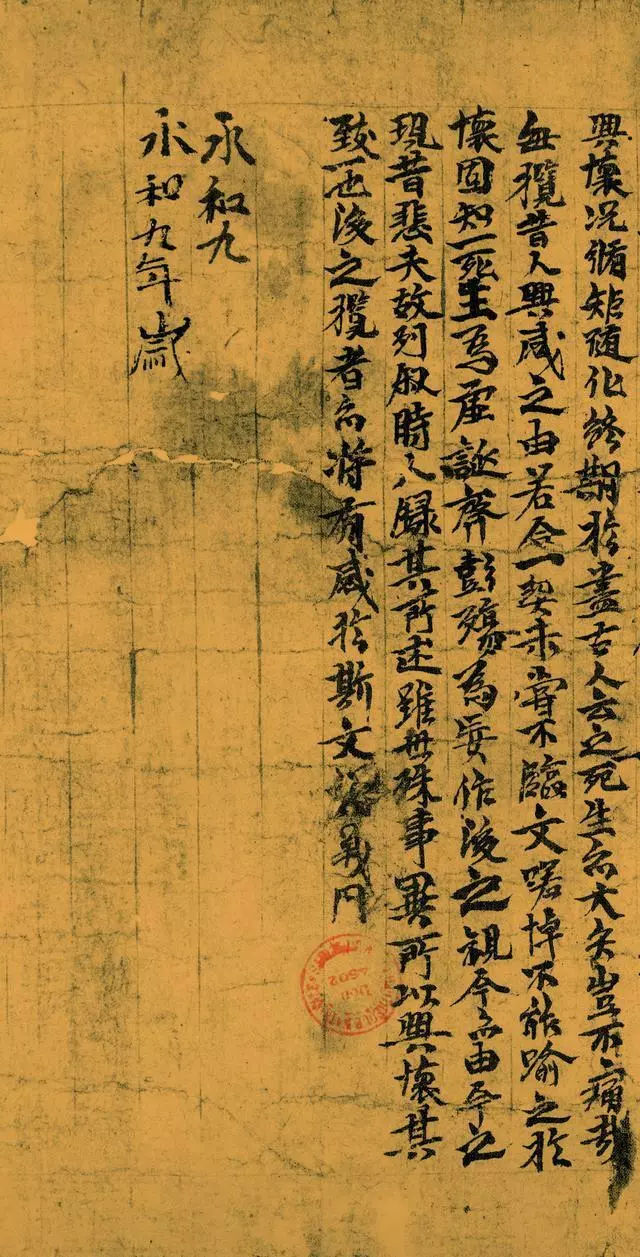 興懷况脩矩隨化終期扵盡古人云之死生亦大矣豈不痛哉
每攬昔人興感之由若合一契未甞不臨文嗟悼不能喻之扵
懷固知一死生為虛誕齊彭殤為妄作後之視今亦由今之
現昔悲夫故列叙時人録其所述雖世殊事異所以興懷其
致一也後之攬者亦將有感扵斯文
永和九
永和九年歲
DON 4502